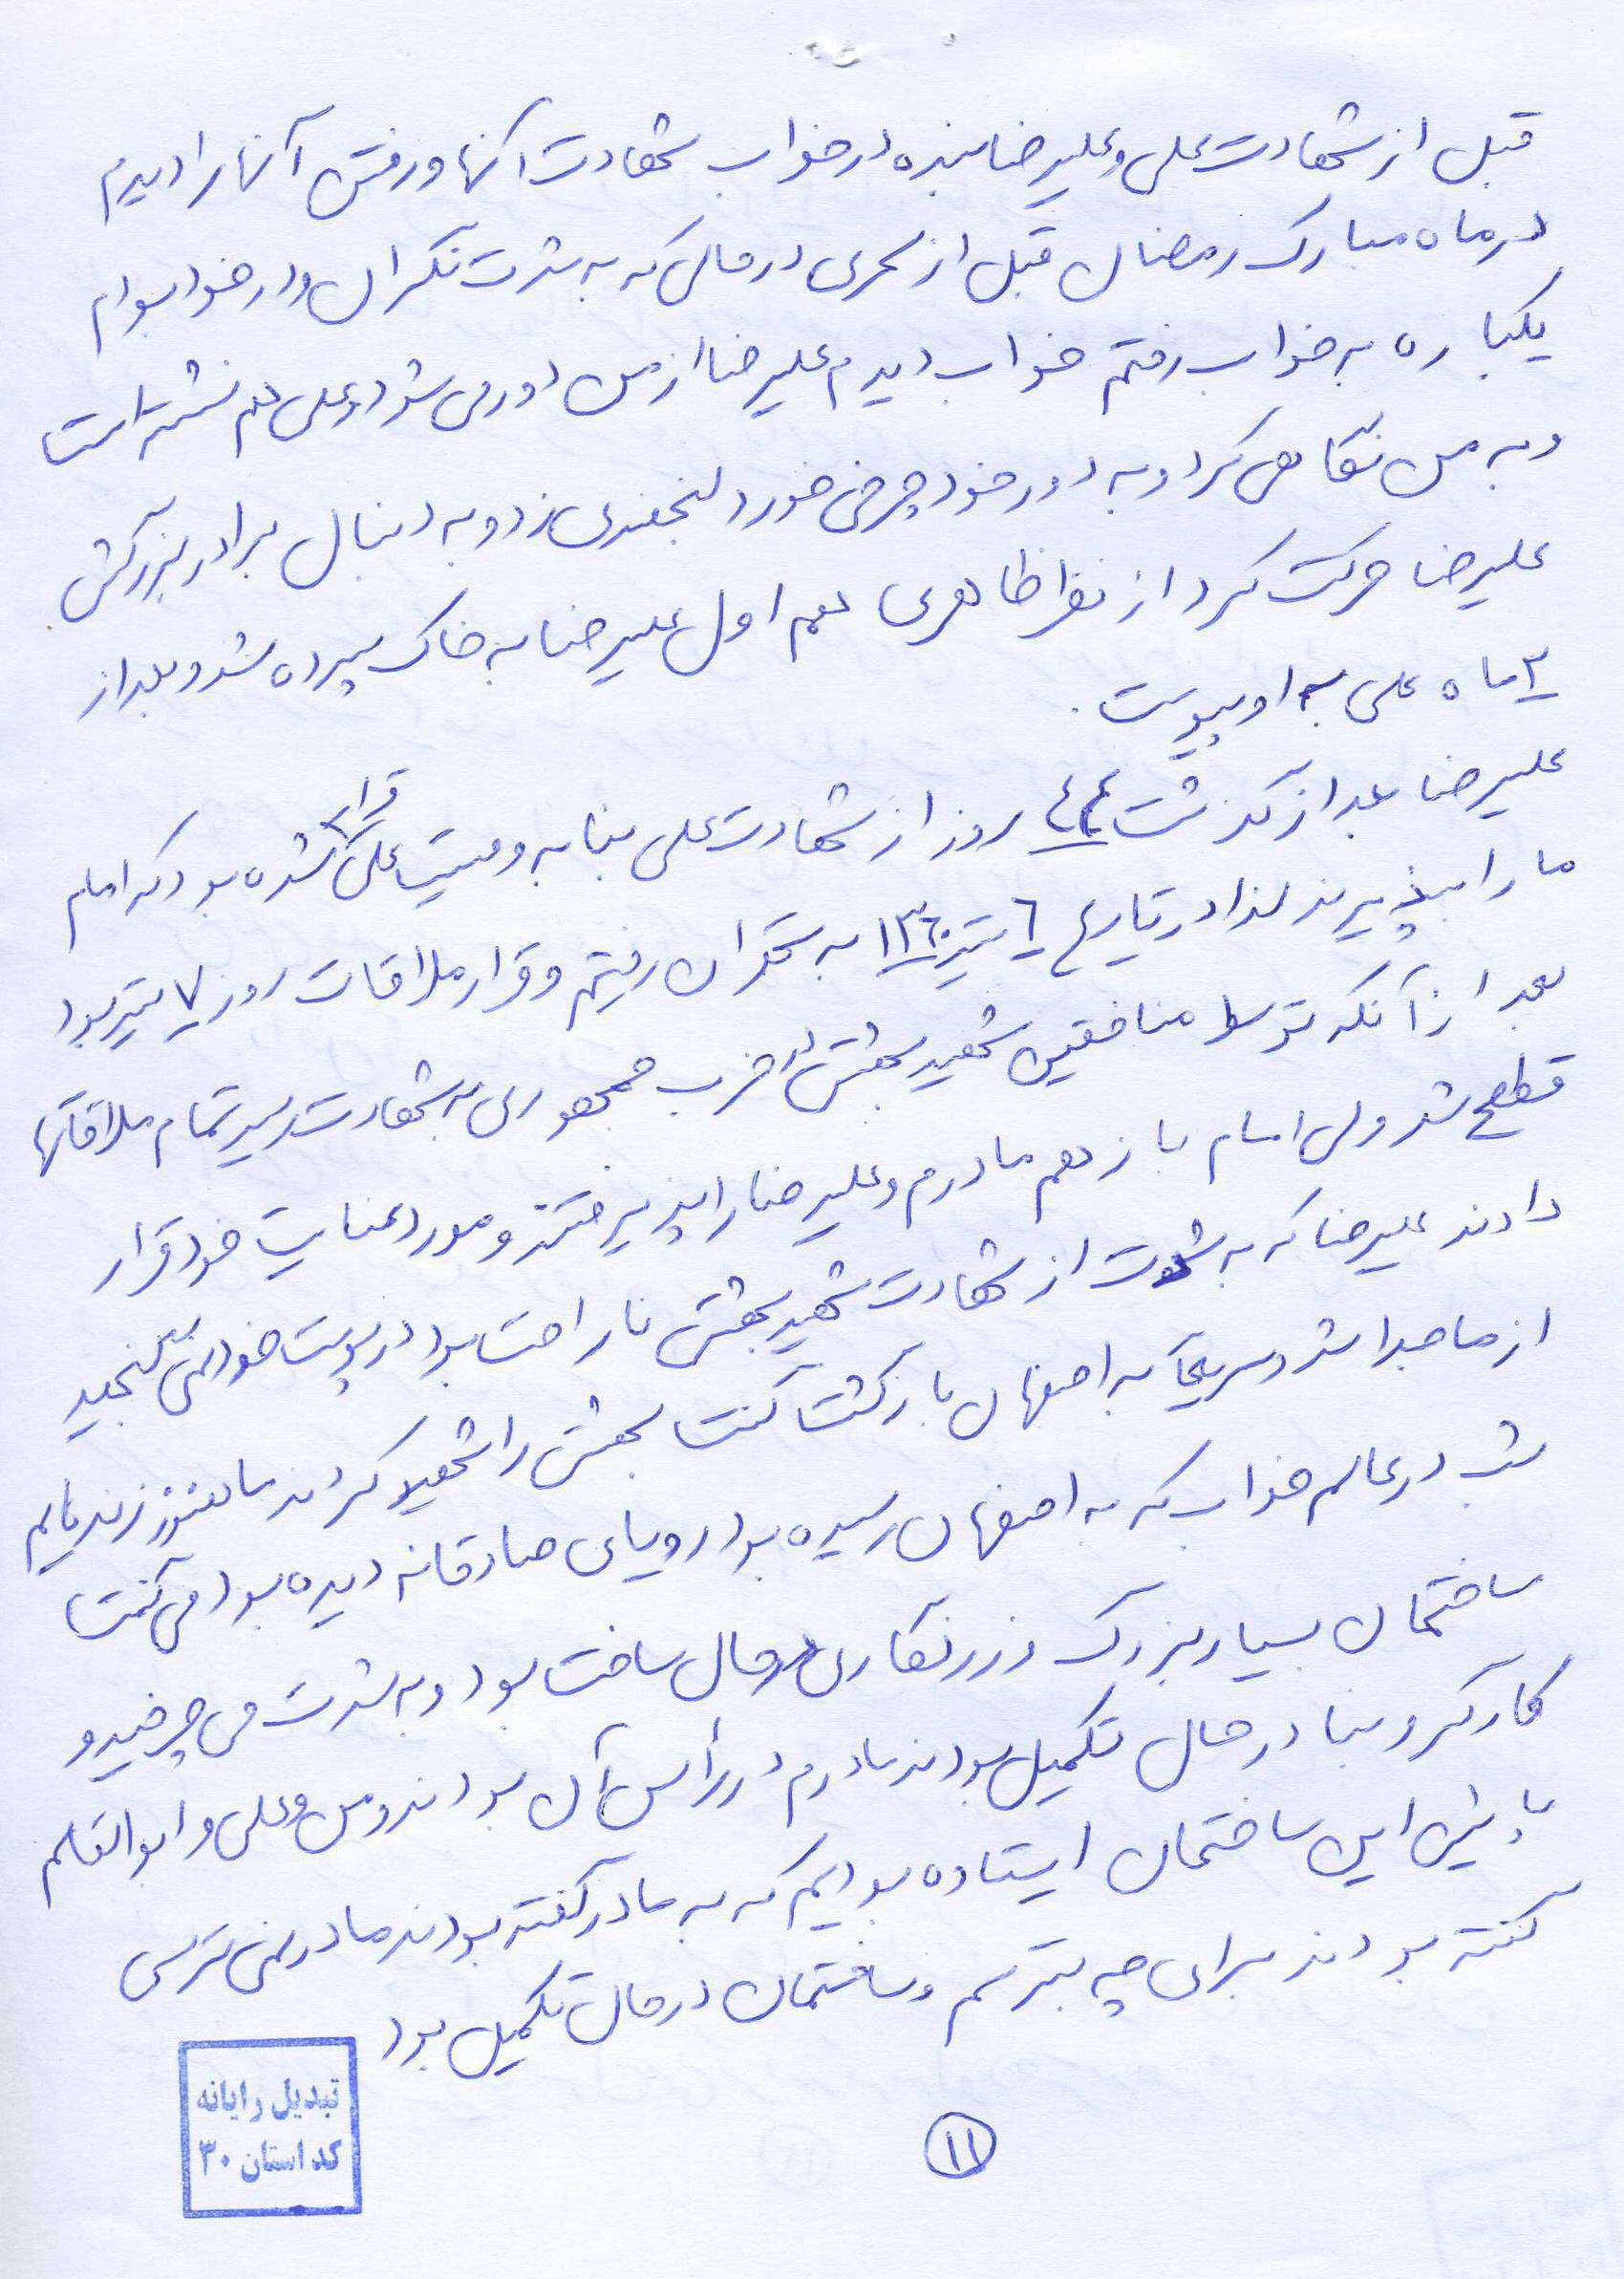 قبل از شهادت علی و علیرضا بنده در خواب شهادت آنها و رفتن آنها را دیدم
در ماه مبارک رمضان قبل از سحری در حالی که به شدت نگران و در خواب بودم
یکباره به خواب رفتم خواب دیدم علیرضا از من دور می شود و علی هم نشسته است
و به من نگاهی کرد و به دور خود چرخی خورد لبخندی زد و به دنبال برادر بزرگش
علیرضا حرکت کرد از نظر ظاهری هم اول علیرضا به خاک سپرده شد و بعد از
ماه علی به او پیوست.
علیرضا بعد از گذشت ٤٤ روز از شهادت علی بنا به وصیت علی قرار شده بود که امام
ما را بپذیرند لذا در تاریخ ٦ تیر ١٣٦٠ به تهران رفتیم و قرار ملاقات روز ٧ تیر بود
بعد از آنکه توسط منافقین شهید بهشتی در حزب جمهوری به شهادت رسید تمام ملاقاتها
قطع شد ولی امام باز هم مادرم و علیرضا را پذیرفتند و مورد عنایت خود قرار
دادند علیرضا که به شدت از شهادت شهید بهشتی ناراحت بود در پوست خود نمی گنجید
از ما جدا شد و سریعاً به اصفهان بازگشت گفت بهشتی را شهید کردند ما هنوز زنده ایم
شب در عالم خواب که به اصفهان رسیده بود رویای صادقانه دیده بود می گفت
ساختمان بسیار بزرگ و زرنگاری در حال ساخت بود و به شدت می چرخید و
کارگر و بنا در حال تکمیل بودند مادرم در رأس آن بودند و من و علی و ابوالقاسم
پائین این ساختمان ایستاده بودیم که به مادر گفته بودند مادر نمی ترسی
گفته بودند برای چه بترسم و ساختمان در حال تکمیل بود
١١
تبدیل رایانه
کد استان ٣٠